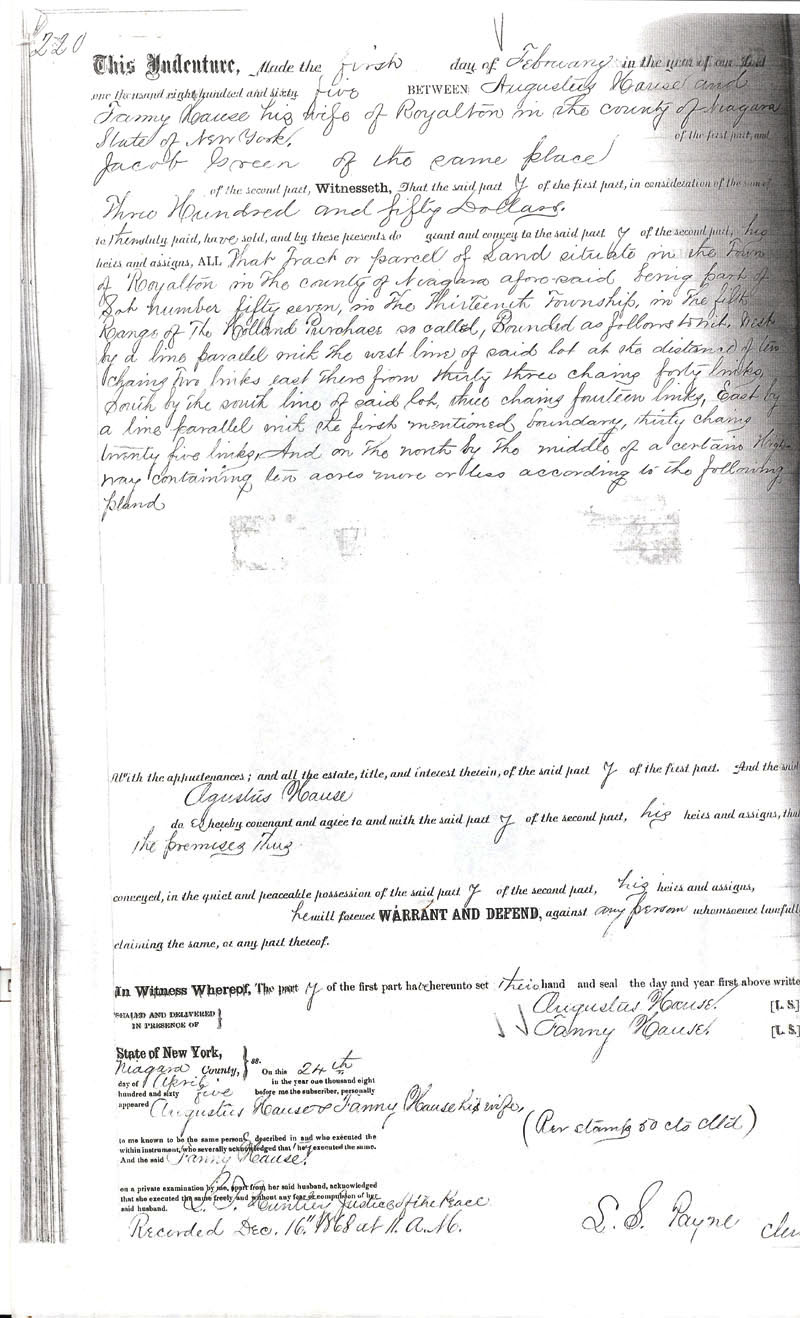 220
This Indenture, Made the first day of February in the year of our Lord
one thousand eight hundred and sixty five BETWEEN Augustus Hause and
Fanny Hause his wife of Royalton in the county of Niagara
State of New York, of the first part, and
Jacob Green of the same place
of the second part, Witnesseth, That the said part y of the first part, in consideration of the sum of
Three Hundred and fifty Dollars.
to them duly paid, have sold, and by these presents do grant and convey to the said part y of the second part, his
heirs and assigns, ALL That Tract or parcel of Land situate in the Town
of Royalton in the county of Niagara afore said, being part of
Lot number fifty seven, in The Thirteenth Township, in The fifth
Range of The Holland Purchase so called, Bounded as follows to wit, West
by a line parallel with the west line of said lot at the distance of ten
chains two links east there from thirty three chains forty links,
South by the south line of said lot, three chains fourteen links, East by
a line parallel with the first mentioned boundary, thirty chains
twenty five links, And on the north by the middle of a certain High-
way containing ten acres more or less according to the following
pland
With the appurtenances; and all the estate, title, and interest therein, of the said part y of the first part. And the said
Agustus Hause
do es hereby covenant and agree to and with the said part y of the second part, his heirs and assigns, that
the premises thus
conveyed, in the quiet and peaceable possession of the said part y of the second part, his heirs and assigns,
he will forever WARRANT AND DEFEND, against any person whomsoever lawfull
claiming the same, or any part thereof.
In Witness Whereof, The part y of the first part have hereunto set their hand and seal the day and year first above writte
SEALED AND DELIVERED IN PRESENCE OF } Augustus Hause. [L. S.]
Fanny Hause. [L. S.]
State of New York,
Niagara County, } ss. On this 24th
day of April in the year one thousand eight
hundred and sixty five before me the subscriber, personally
appeared Augustus Hause & Fanny Hause his wife,
(Rev stamps 50 cts Cltd)
to me known to be the same persons described in and who executed the
within instrument, who severally acknowledged that they executed the same.
And the said Fanny Hause,
on a private examination by me, apart from her said husband, acknowledged
that she executed the same freely and without any fear or compulsion of her
said husband. Justice of the Peace
Recorded Dec. 16" 1868 at 11. A.M. L. S. Payne Cler